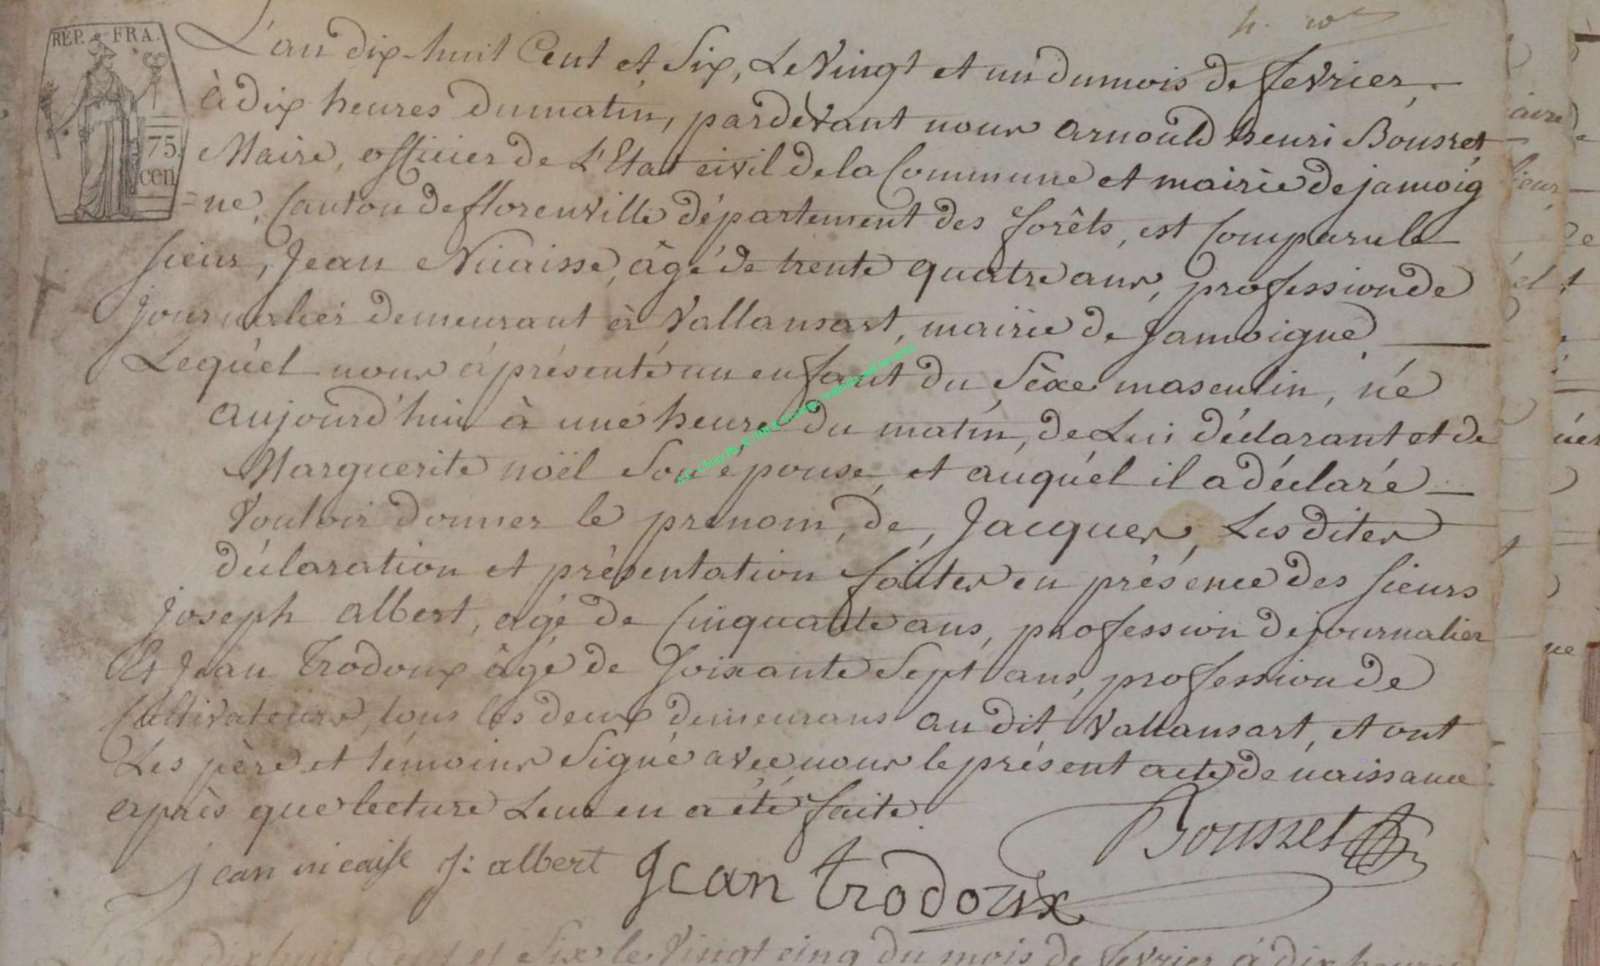 h. w
REP. FRA.
75.
cen
L'an dix-huit Cent et Six, Le Vingt et un du mois de fevrier,
à dix heures du matin, pardevant nous arnould henri Bousret
Maire, officier de L'Etat civil de la Commune et mairie de jamoig
=ne, Canton de florenville département des forêts, est Comparu le
sieur, Jean Nicaisse, âgé de trente quatre ans, profession de
journalier demeurant à Vallansart, mairie de Jamoigne
Lequél nous à présenté un enfant du Sèxe masculin, né
aujourd'hui à une heure du matin, de Lui déclarant et de
Marguerite noël Son épouse, et auquél il a déclaré
Vouloir donner le prenom, de, Jacques, Les dites
déclaration et présentation faites en présence des sieurs
joseph albert, agé de Cinquante ans, profession de journalier
Et Jean Trodoux âgé de Soixante Sept ans, profession de
Cultivateurs, tous les deux demeurans au dit Vallansart, et ont
Les père et témoins Signé avec nous le présent acte de naissance
après que lecture Leur en a été faite
Bousret
jean nicaise j: albert Jean Trodoux
dix huit Cent et Six le Vingt cinq du mois de fevrier à dix heures